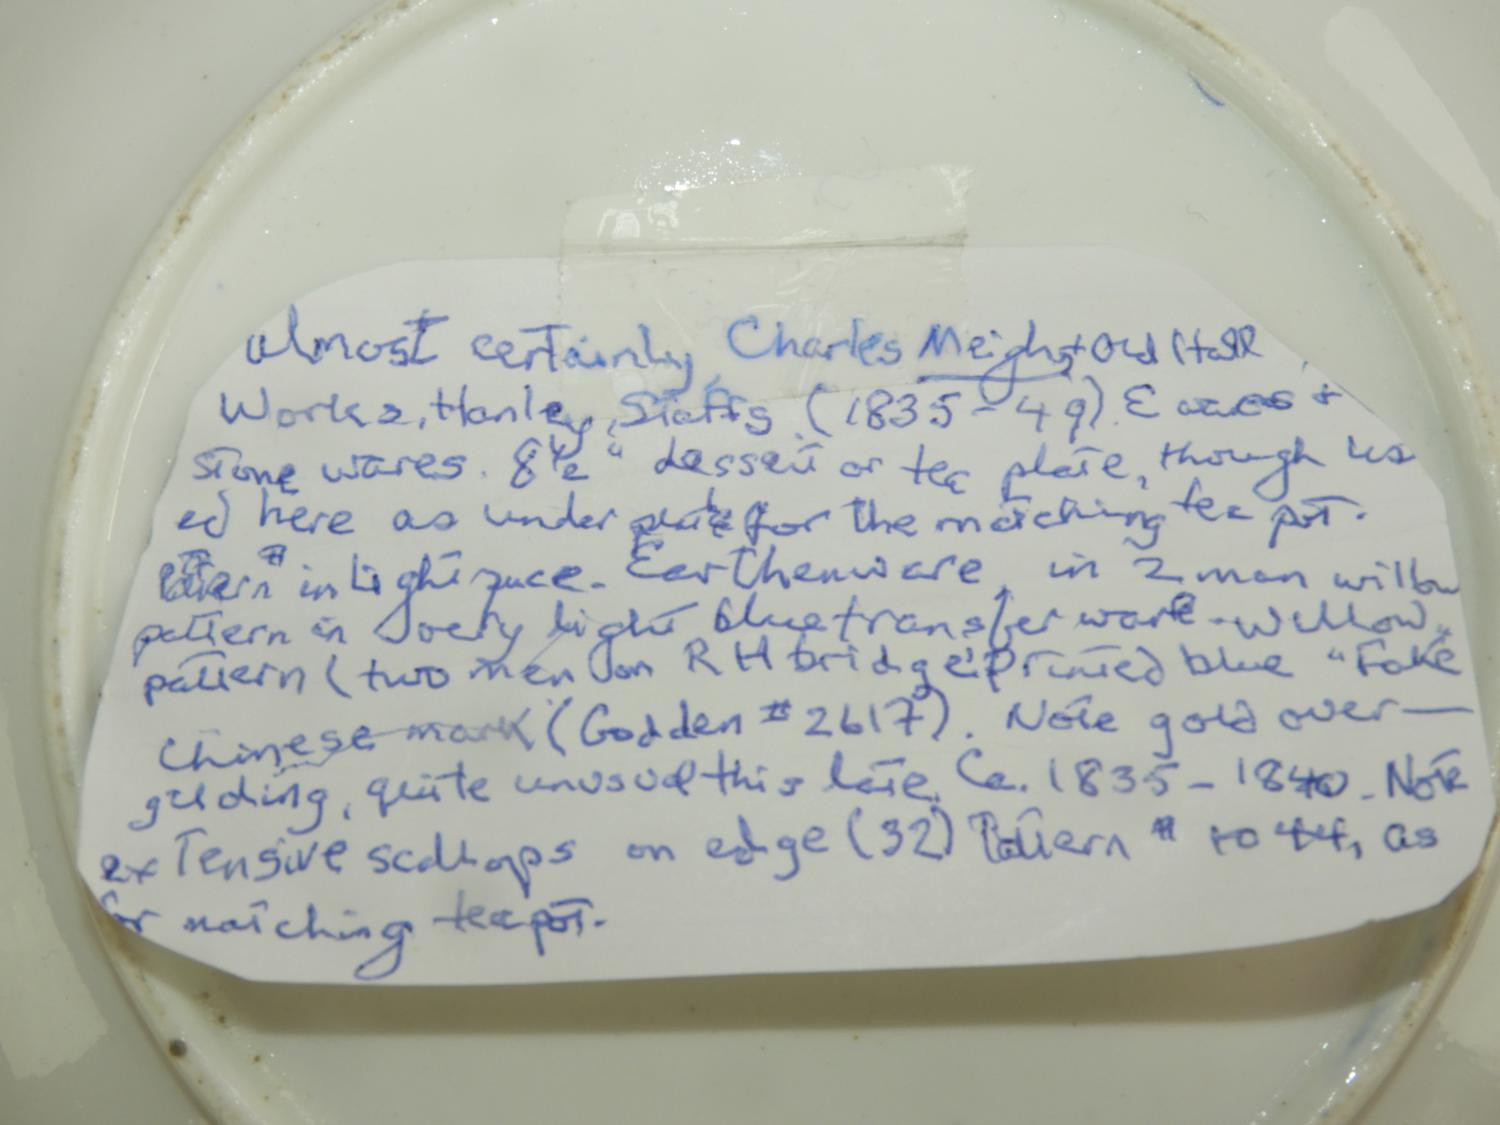 almost certainly Charles Meigh, Old Hall
Works, Hanley, Staffs (1835-49). E wares +
stone wares. 8½" dessert or tea plate, though us
ed here as under plate for the matching tea pot.
Pattern # in light puce. Earthenware, in 2 man willow
pattern in very light blue transfer ware - Willow
pattern (two men on RH bridge. Printed blue "Fake
Chinese mark (Godden #2617). Note gold over—
gilding, quite unusual this late. Ca. 1835-1840. Note
extensive scallops on edge (32) Pattern # to 44, as
for matching teapot.